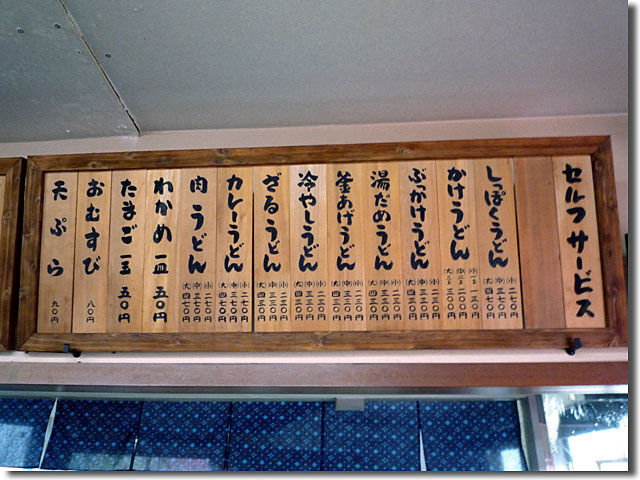 セルフサービス
しっぽくうどん
小 二七〇円
中 三七〇円
大 四七〇円
かけうどん
ぶっかけうどん
小 二三〇円
中 三三〇円
大 四三〇円
湯だめうどん
小 二三〇円
中 三三〇円
大 四三〇円
釜あげうどん
小 二三〇円
中 三三〇円
大 四三〇円
冷やしうどん
小 二三〇円
中 三三〇円
大 四三〇円
ざるうどん
小 二三〇円
中 三三〇円
大 四三〇円
カレーうどん
小 二七〇円
中 三七〇円
大 四七〇円
肉うどん
小 二七〇円
中 三七〇円
大 四七〇円
わかめ 一皿 五〇円
たまご 一玉 五〇円
おむすび 八〇円
天ぷら 九〇円